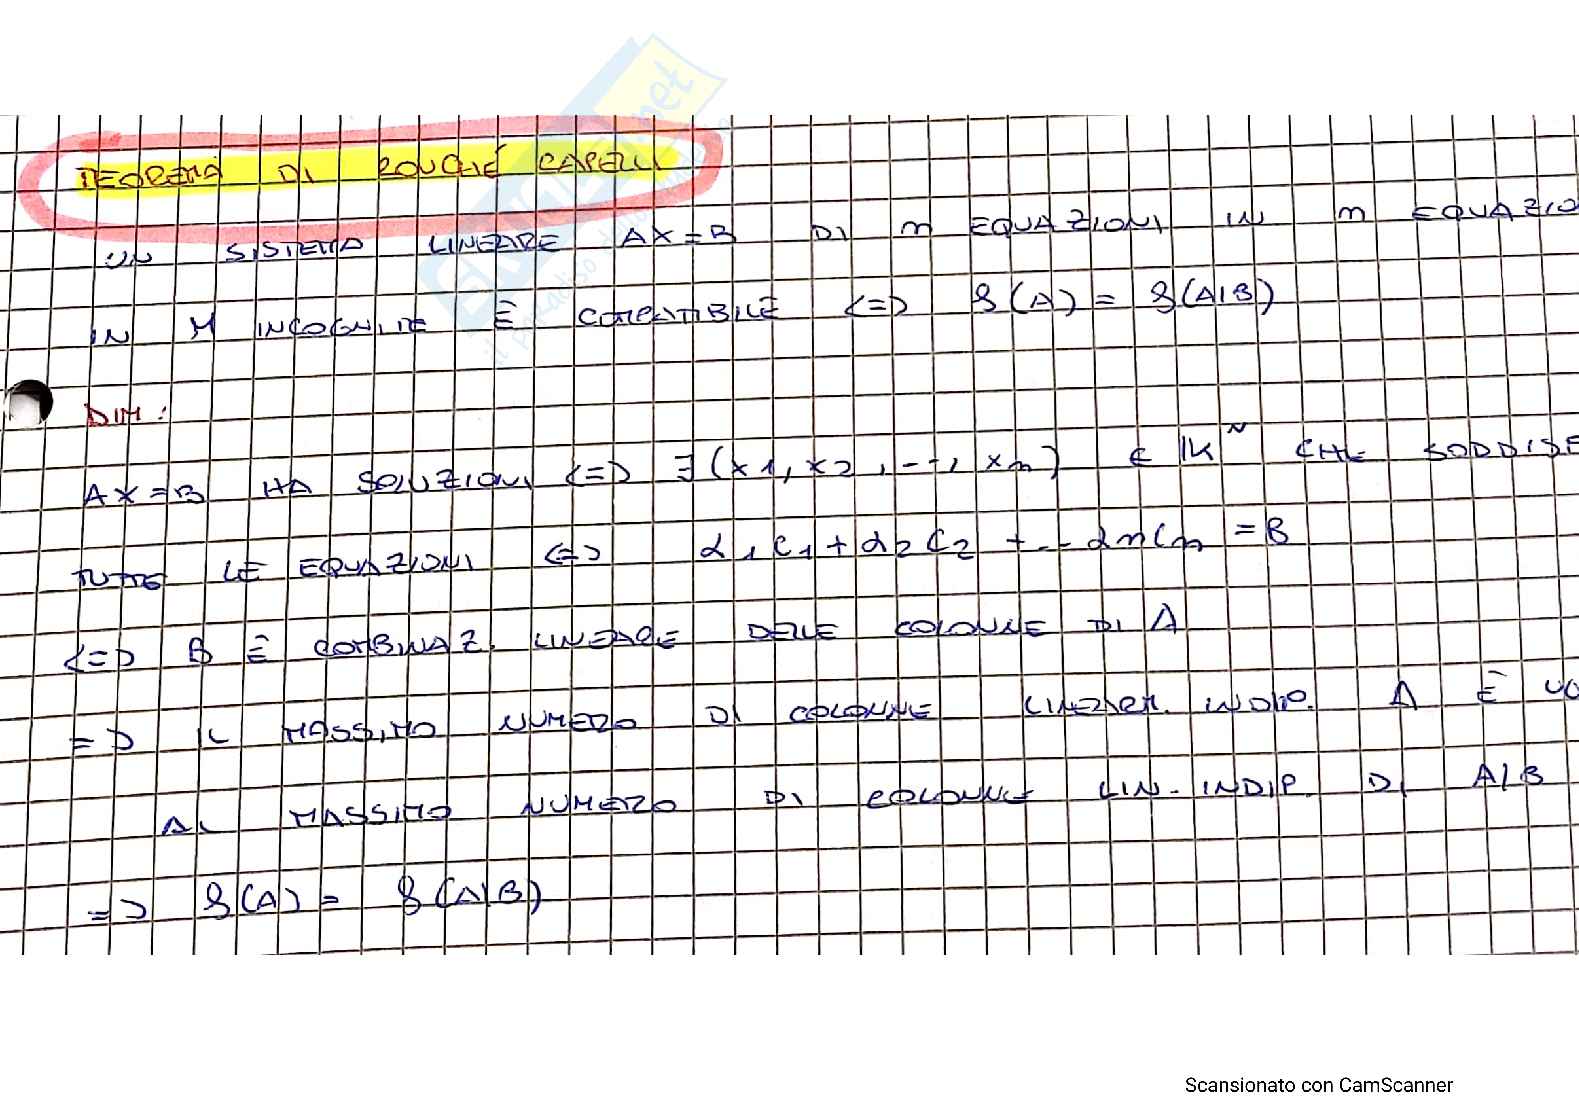 TEOREMA DI ROUCHÉ CAPELLI
UN SISTEMA LINEARE AX=B DI m EQUAZIONI IN m EQUAZIO
IN M INCOGNITE È COMPATIBILE <=> ρ(A) = ρ(A|B)
DIM:
AX=B HA SOLUZIONI <=> ∃(x1, x2, --, xn) ∈ IK^N CHE SODDISF
TUTTE LE EQUAZIONI <=> α1C1 + α2C2 + -- αnCn = B
<=> B È COMBINAZ. LINEARE DELLE COLONNE DI A
=> IL MASSIMO NUMERO DI COLONNE LINEAR. INDIP. A È UG
AL MASSIMO NUMERO DI COLONNE LIN. INDIP. DI A|B
=> ρ(A) = ρ(A|B)
Scansionato con CamScanner